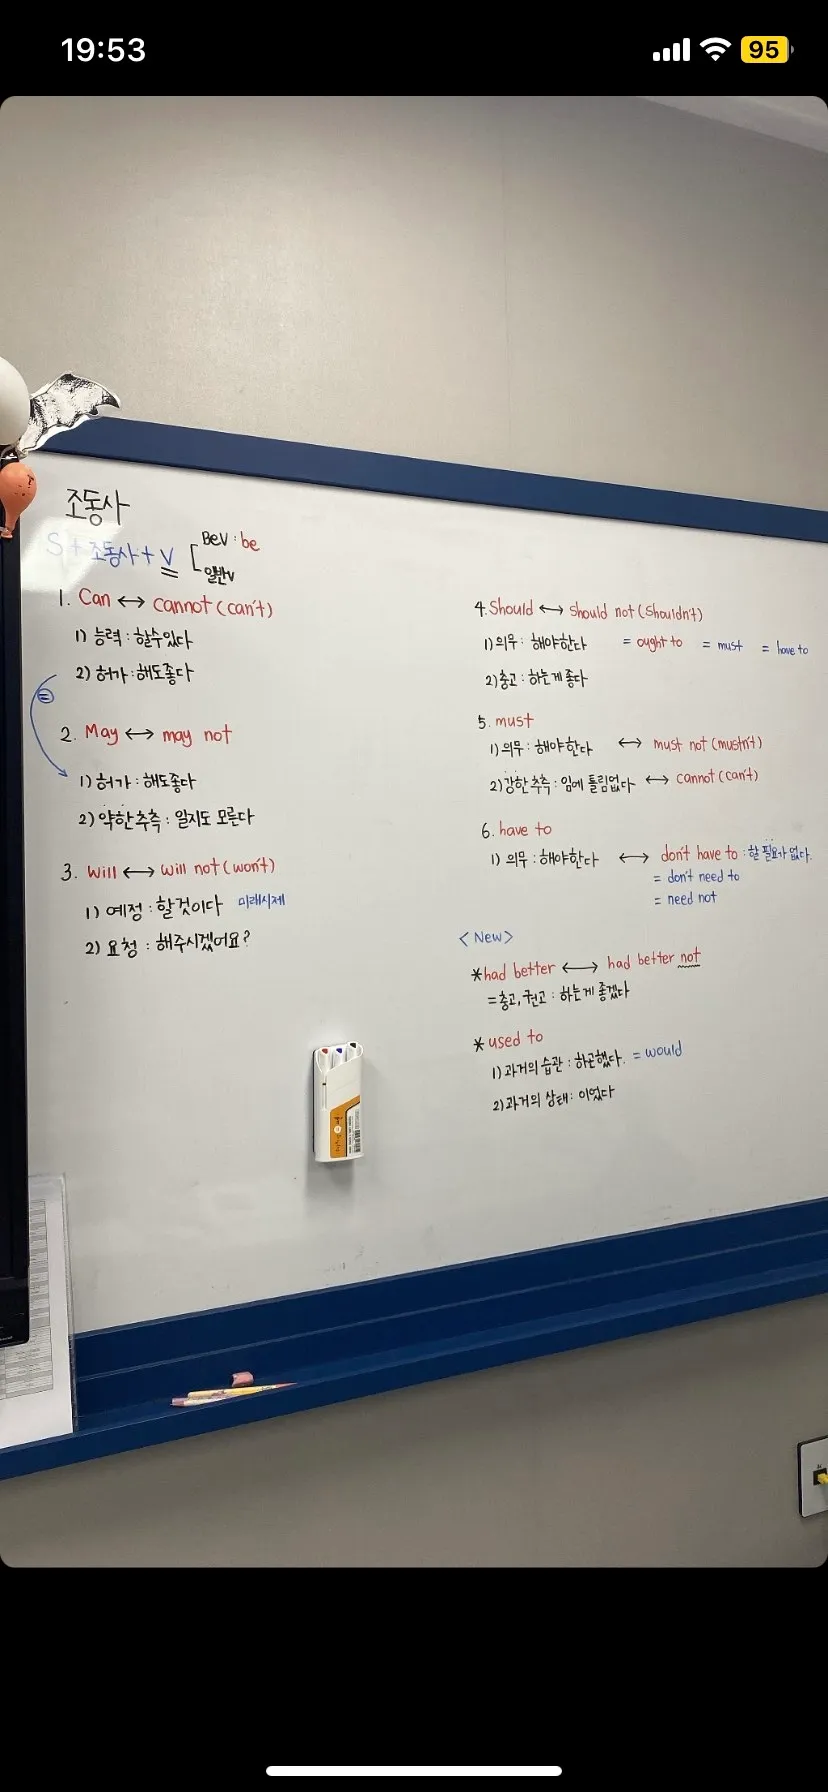 19:53
95
조동사
S + 조동사 + V
BeV : be
일반V
1. Can ↔ cannot (can't)
1) 능력 : 할수있다
2) 허가 : 해도좋다
=
2. May ↔ may not
1) 허가 : 해도좋다
2) 약한추측 : 일지도 모른다
3. Will ↔ will not (won't)
1) 예정 : 할것이다 미래시제
2) 요청 : 해주시겠어요?
4. Should ↔ should not (shouldn't)
1) 의무 : 해야한다 = ought to = must = have to
2) 충고 : 하는게 좋다
5. must
1) 의무 : 해야한다 ↔ must not (mustn't)
2) 강한추측 : 임에 틀림없다 ↔ cannot (can't)
6. have to
1) 의무 : 해야한다 ↔ don't have to : 할 필요가 없다.
= don't need to
= need not
<New>
* had better ↔ had better not
= 충고, 권고 : 하는게 좋겠다
* used to
1) 과거의 습관 : 하곤했다. = would
2) 과거의 상태 : 이었다